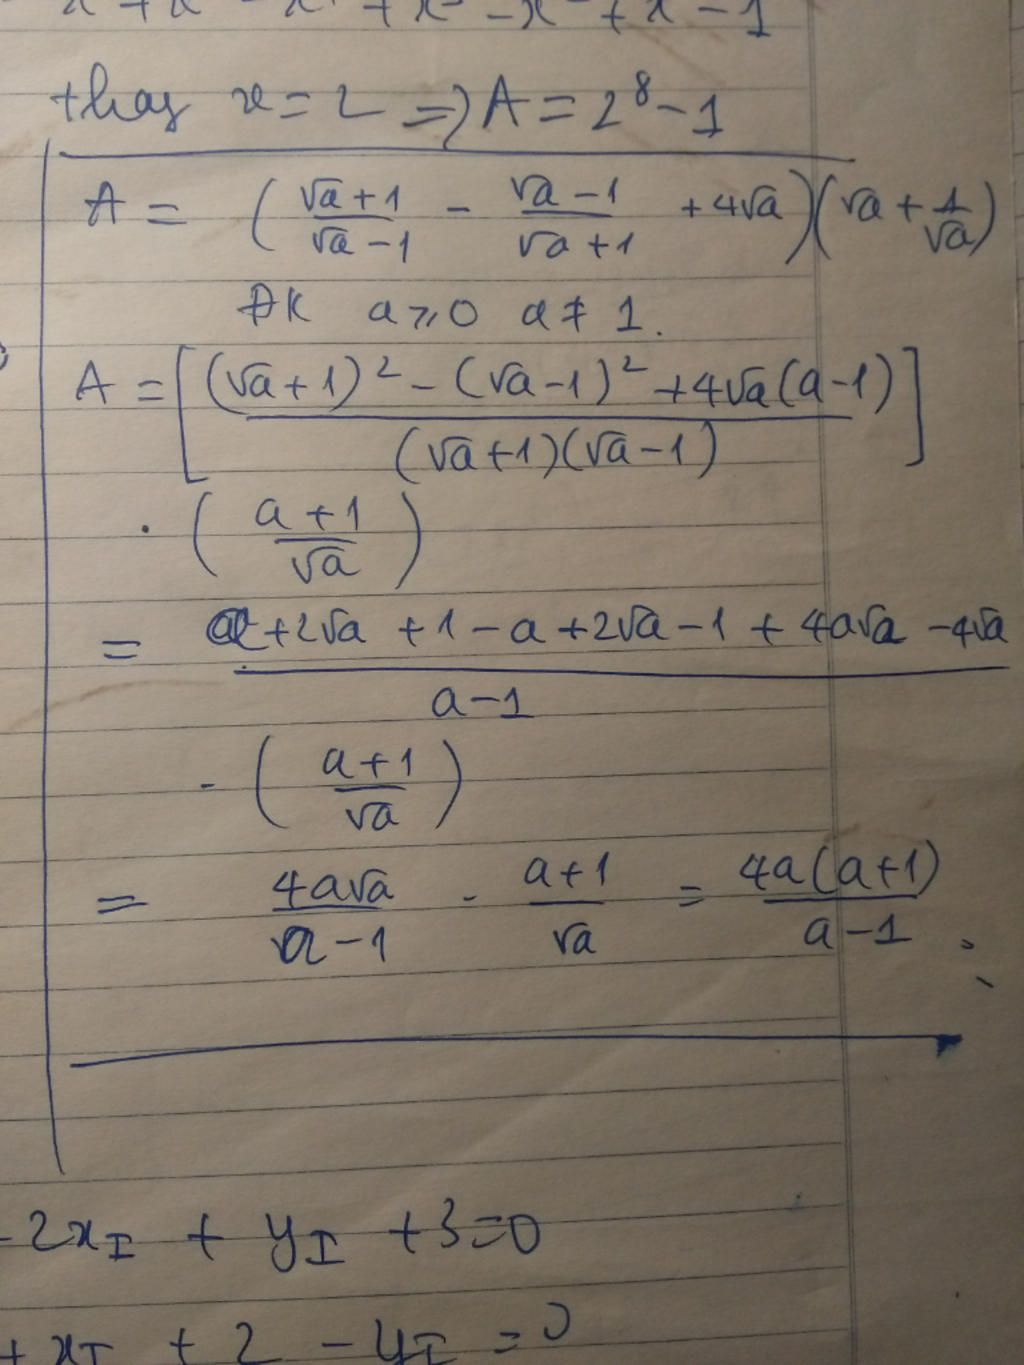 thay x = 2 => A = 2⁸ - 1
A = ( (√a + 1)/(√a - 1) - (√a - 1)/(√a + 1) + 4√a ) (√a + 1/√a)
ĐK a ≥ 0 a ≠ 1.
A = [ ((√a + 1)² - (√a - 1)² + 4√a(a - 1)) / ((√a + 1)(√a - 1)) ]
· ( (a + 1)/√a )
= (a + 2√a + 1 - a + 2√a - 1 + 4a√a - 4√a) / (a - 1)
· ( (a + 1)/√a )
= 4a√a/(a - 1) · (a + 1)/√a = 4a(a + 1)/(a - 1)
- 2x_I + y_I + 3 = 0
+ x_I + 2 - y_I = 0